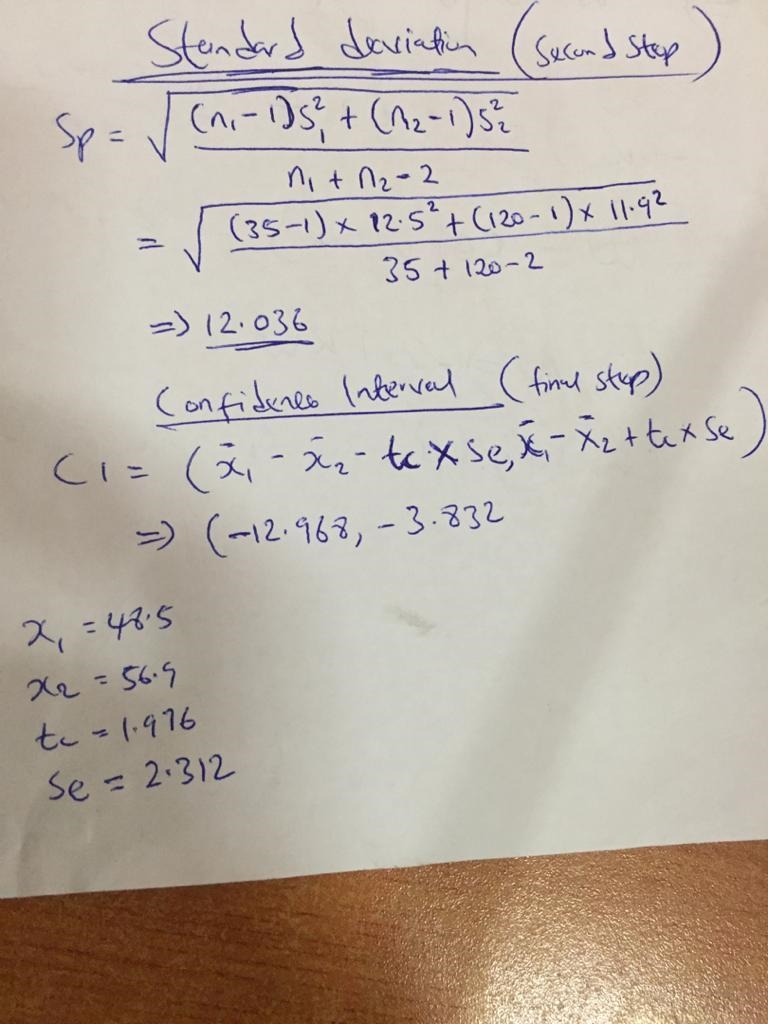 Standard deviation (second step)
Sp = √((n₁-1)S₁² + (n₂-1)S₂²
n₁ + n₂ - 2
= √((35-1) × 12.5² + (120-1) × 11.9²
35 + 120 - 2
=> 12.036
Confidence Interval (final step)
CI = (x̄₁ - x̄₂ - tc × Se, x̄₁ - x̄₂ + tc × Se)
=> (-12.968, -3.832
x₁ = 48.5
x₂ = 56.9
tc = 1.976
Se = 2.312